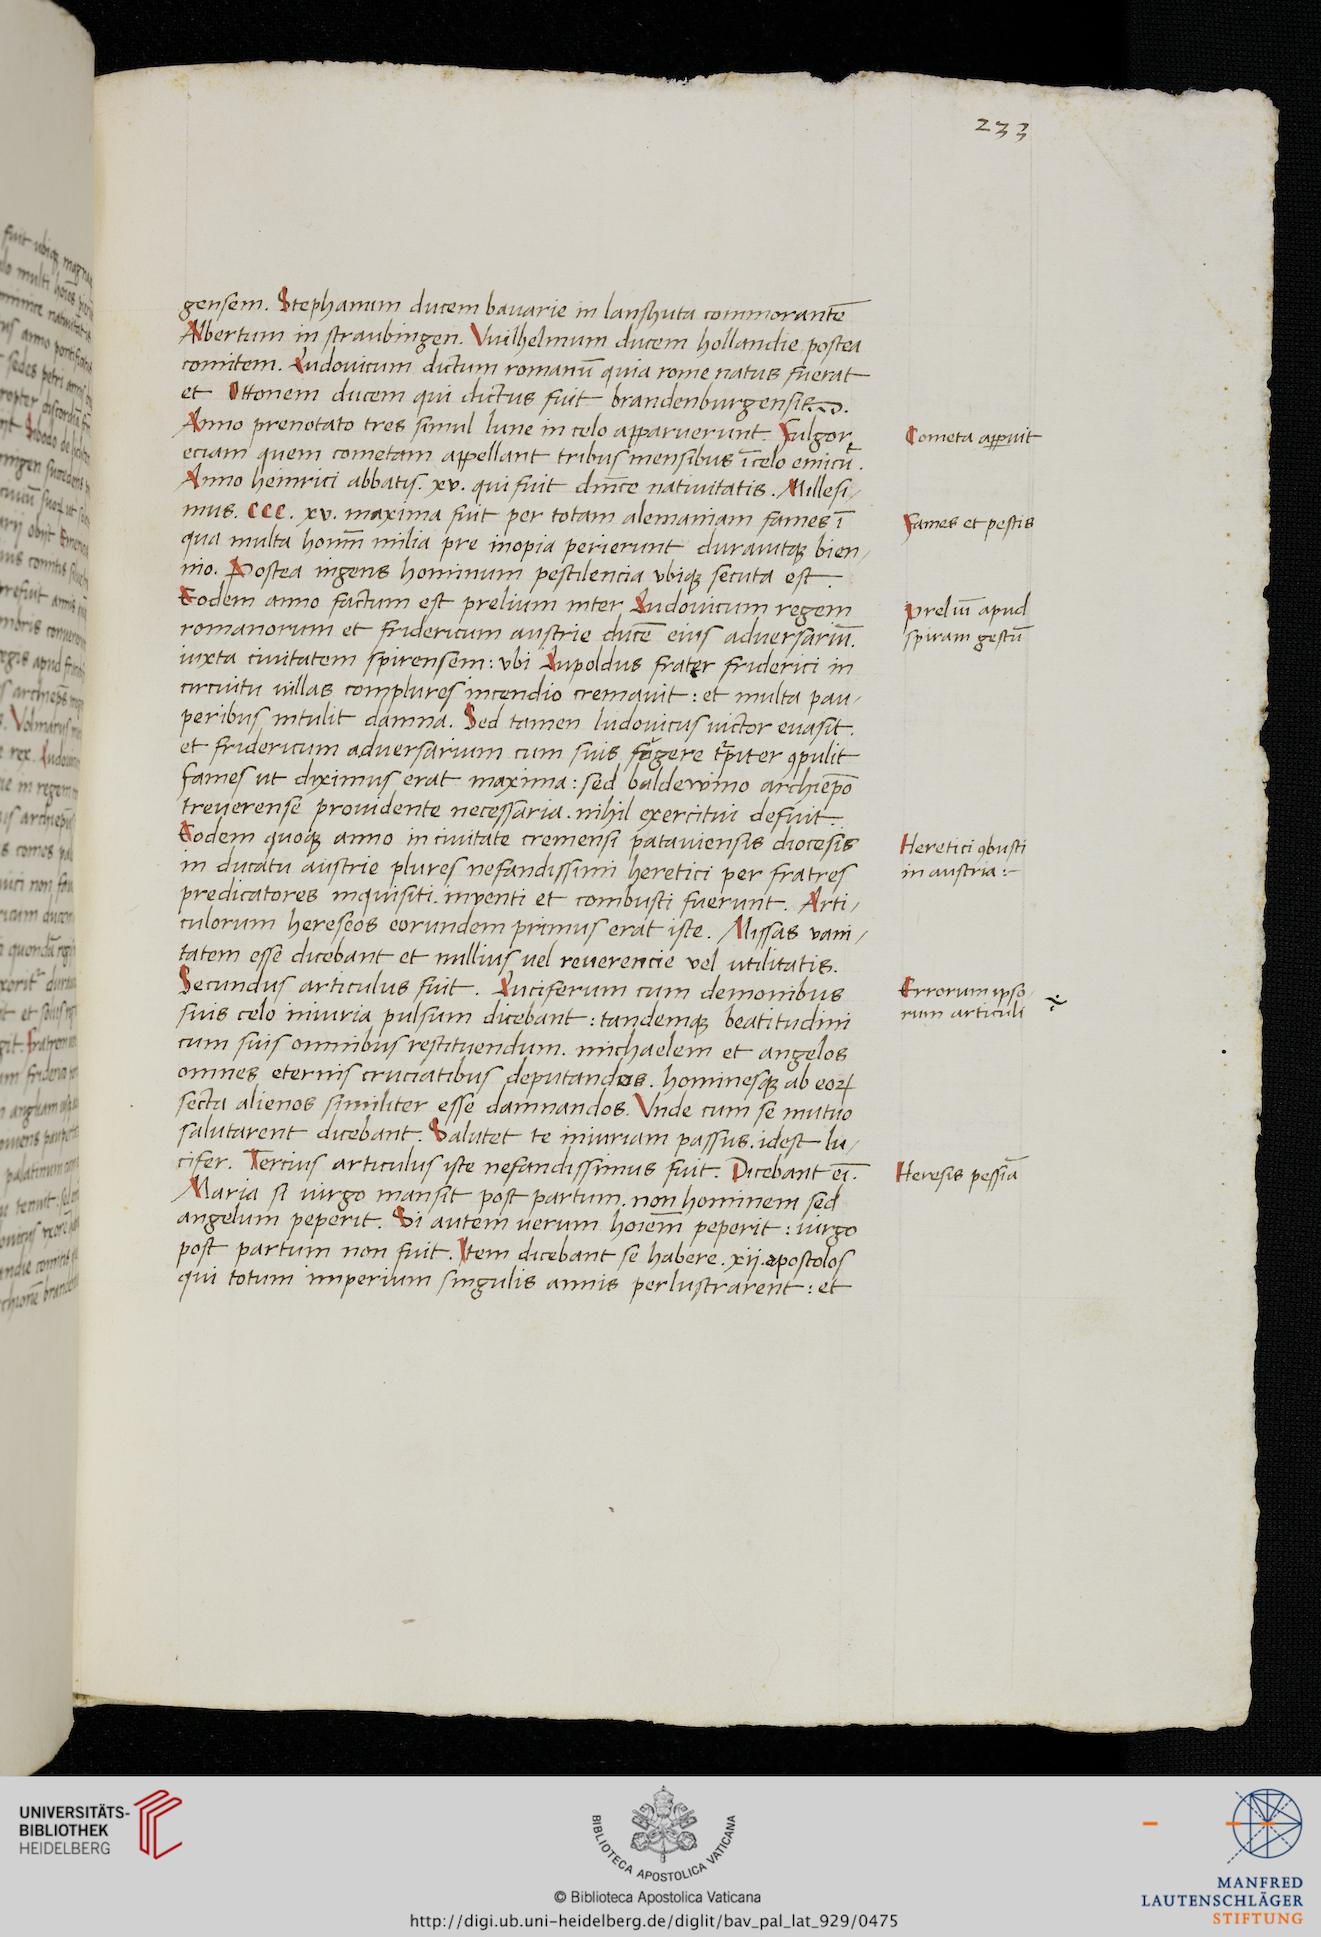 233
gensem. Stephanum ducem bavarie in lanshuta commorantē
Albertum in straubingen. Vuilhelmum ducem hollandie postea
comitem. Ludouicum dictum romanū quia rome natus fuerat
et Ottonem ducem qui dictus fuit brandenburgensis.
Anno prenotato tres simul lune in celo apparuerunt. Fulgor
eciam quem cometam appellant tribus mensibus ī celo emicu͛.
Cometa aꝑuit
Anno heinrici abbatis. xv. qui fuit dn̄ice natiuitatis. Millesi/
mus. CCC. xv. maxima fuit per totam alemaniam fames ī
Fames et pestis
qua multa hom̄ milia pre inopia perierunt durauitqꝫ bien/
nio. Postea ingens hominum pestilencia vbiqꝫ secuta est.
Eodem anno factum est prelium inter Ludouicum regem
preliū apud
romanorum et fridericum austrie ducē eius adversariū.
spiram gestū
iuxta ciuitatem spirensem: vbi Lupoldus frater friderici in
circuitu villas complures incendio cremauit: et multa pau/
peribus intulit damna. Sed tamen ludouicus victor euasit.
et fridericum adversarium cum suis fugere t͛piter ꝯpulit
fames ut diximus erat maxima: sed balderwino archiepō
treuerense prouidente necessaria. nihil exercitui defuit.
Eodem quoqꝫ anno in ciuitate cremensi pataviensis diocesis
Heretici ꝯbusti
in ducatu austrie plures nefandissimi heretici per fratres
in austria:-
predicatores inquisiti. inventi et combusti fuerunt. Arti/
culorum hereseos eorundem primus erat iste. Missas vani/
tatem esse dicebant et nullius uel reverencie vel utilitatis.
Secundus articulus fuit. Luciferum cum demonibus
Errorum ipso
suis celo iniuria pulsum dicebant: tandemqꝫ beatitudini
rum articuli
cum suis omnibus restituendum. michaelem et angelos
omnes eternis cruciatibus deputandos. hominesqꝫ ab eoꝝ
secta alienos similiter esse damnandos. Vnde cum se mutuo
salutarent dicebant. Salutet te iniuriam passus. idest lu/
cifer. Tercius articulus iste nefandissimus fuit. Dicebant eī.
Heresis pessīa
Maria si virgo mansit post partum. non hominem sed
angelum peperit. Si autem uerum hoiem̄ peperit: uirgo
post partum non fuit. Item dicebant se habere. xij. apostolos
qui totum imperium singulis annis perlustrarent: et
UNIVERSITÄTS-
BIBLIOTHEK
HEIDELBERG
BIBLIOTECA APOSTOLICA VATICANA
© Biblioteca Apostolica Vaticana
http://digi.ub.uni-heidelberg.de/diglit/bav_pal_lat_929/0475
MANFRED
LAUTENSCHLÄGER
STIFTUNG